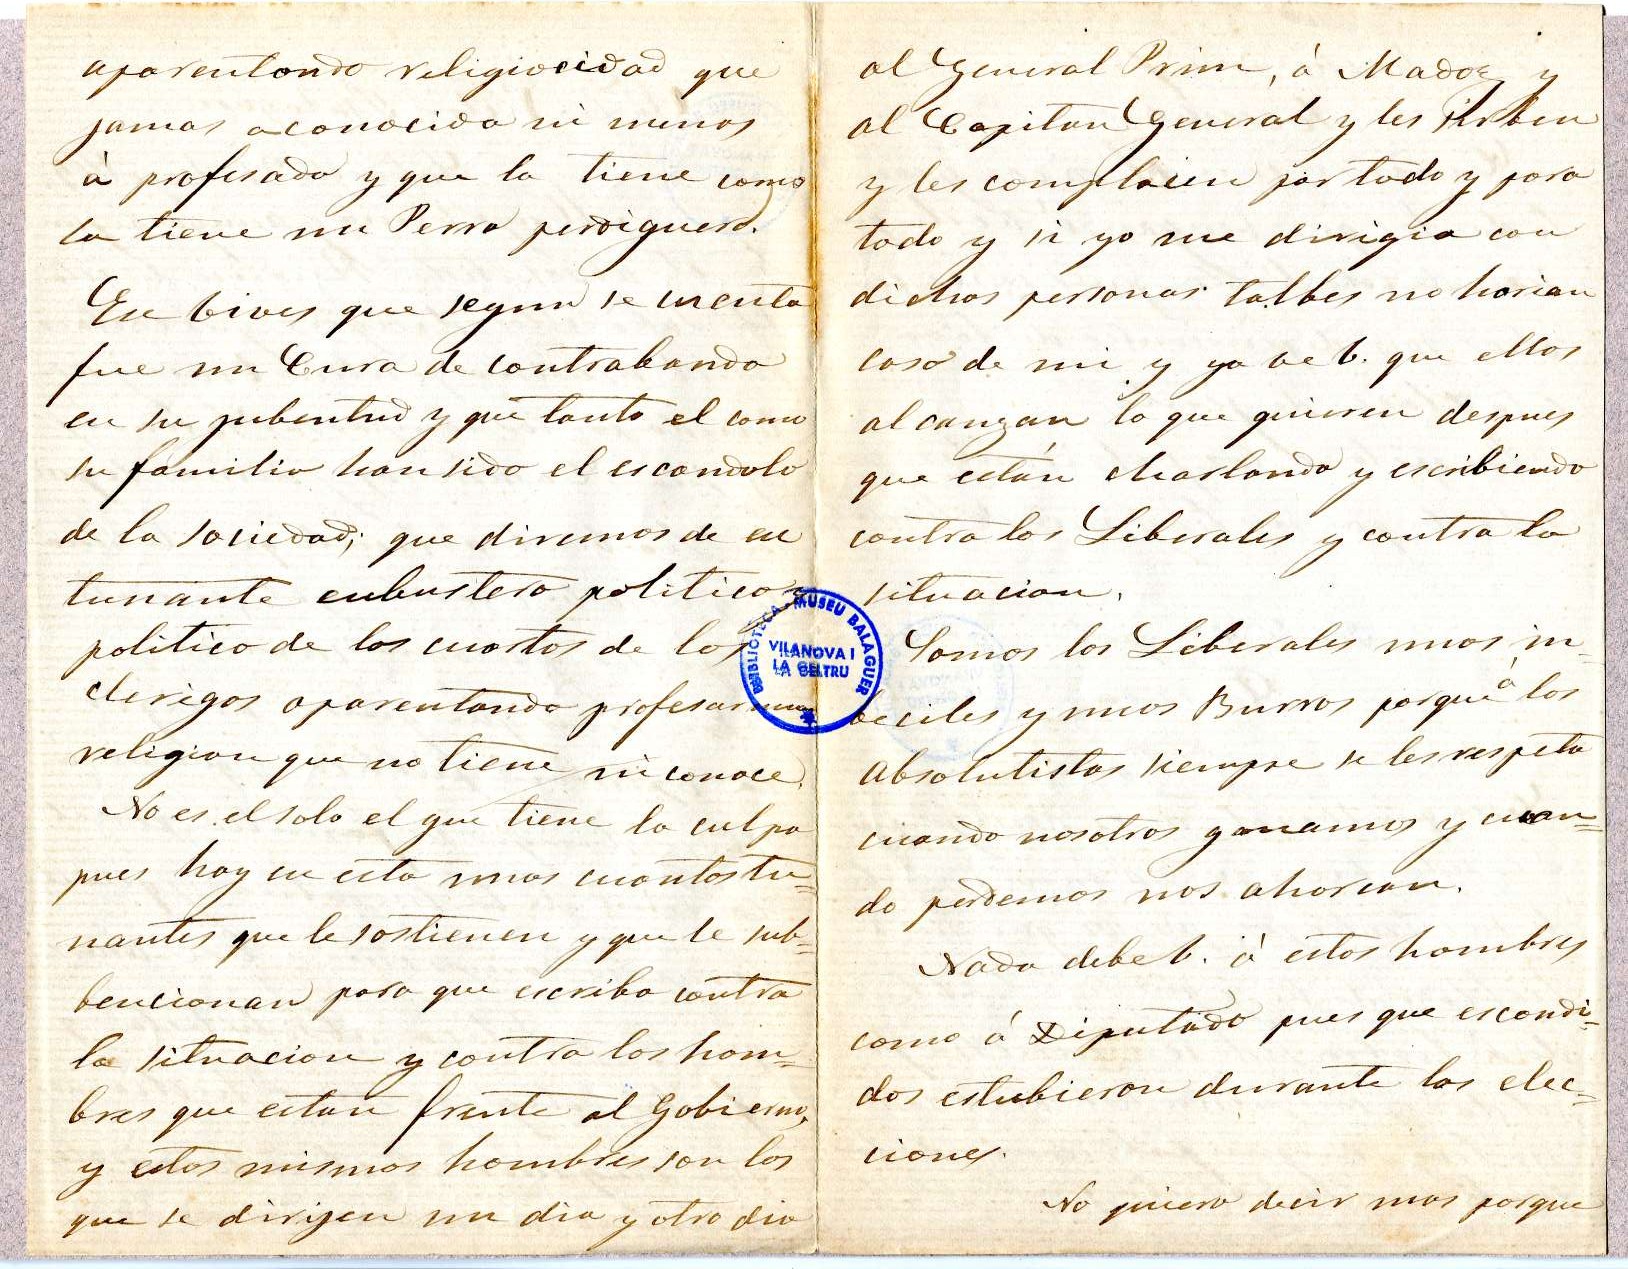 aparentando religiocidad que
jamas aconocido ni menos
à profesado y que la tiene como
la tiene un Perro perdiguero.
Ese Vives que segun se cuenta
fue un Cura de contrabando
en su jubentud y que tanto el como
su familia han sido el escandalo
de la sociedad; que diremos de ese
tunante embustero politico y
politico de los cuartos de los
clerigos aparentando profesar una
religion que no tiene ni conoce.
No es el solo el que tiene la culpa
pues hay en esta unos cuantos tu=
nantes que le sostienen y que le sub=
bencionan para que escriba contra
la situacion y contra los hom=
bres que estan frente al Gobierno,
y estos mismos hombres son los
que se dirijen un dia y otro dia
al General Prim, à Madoz y
al Capitan General y les sirben
y les complacen por todo y para
todo y si yo me dirigia con
dichas personas talbes no harian
caso de mi y ya ve V. que ellos
alcanzan lo que quieren despues
que están charlando y escribiendo
contra los Liberales y contra la
situacion.
Somos los Liberales unos in=
beciles y unos Burros porque à los
Absolutistas siempre se les respeta
cuando nosotros ganamos y cuan=
do perdemos nos ahorcan.
Nada debe V. à estos hombres
como á Diputado pues que escondi=
dos estubieron durante las elec=
ciones.
No quiero decir mas porque
BIBLIOTECA MUSEU BALAGUER
VILANOVA I
LA GELTRU